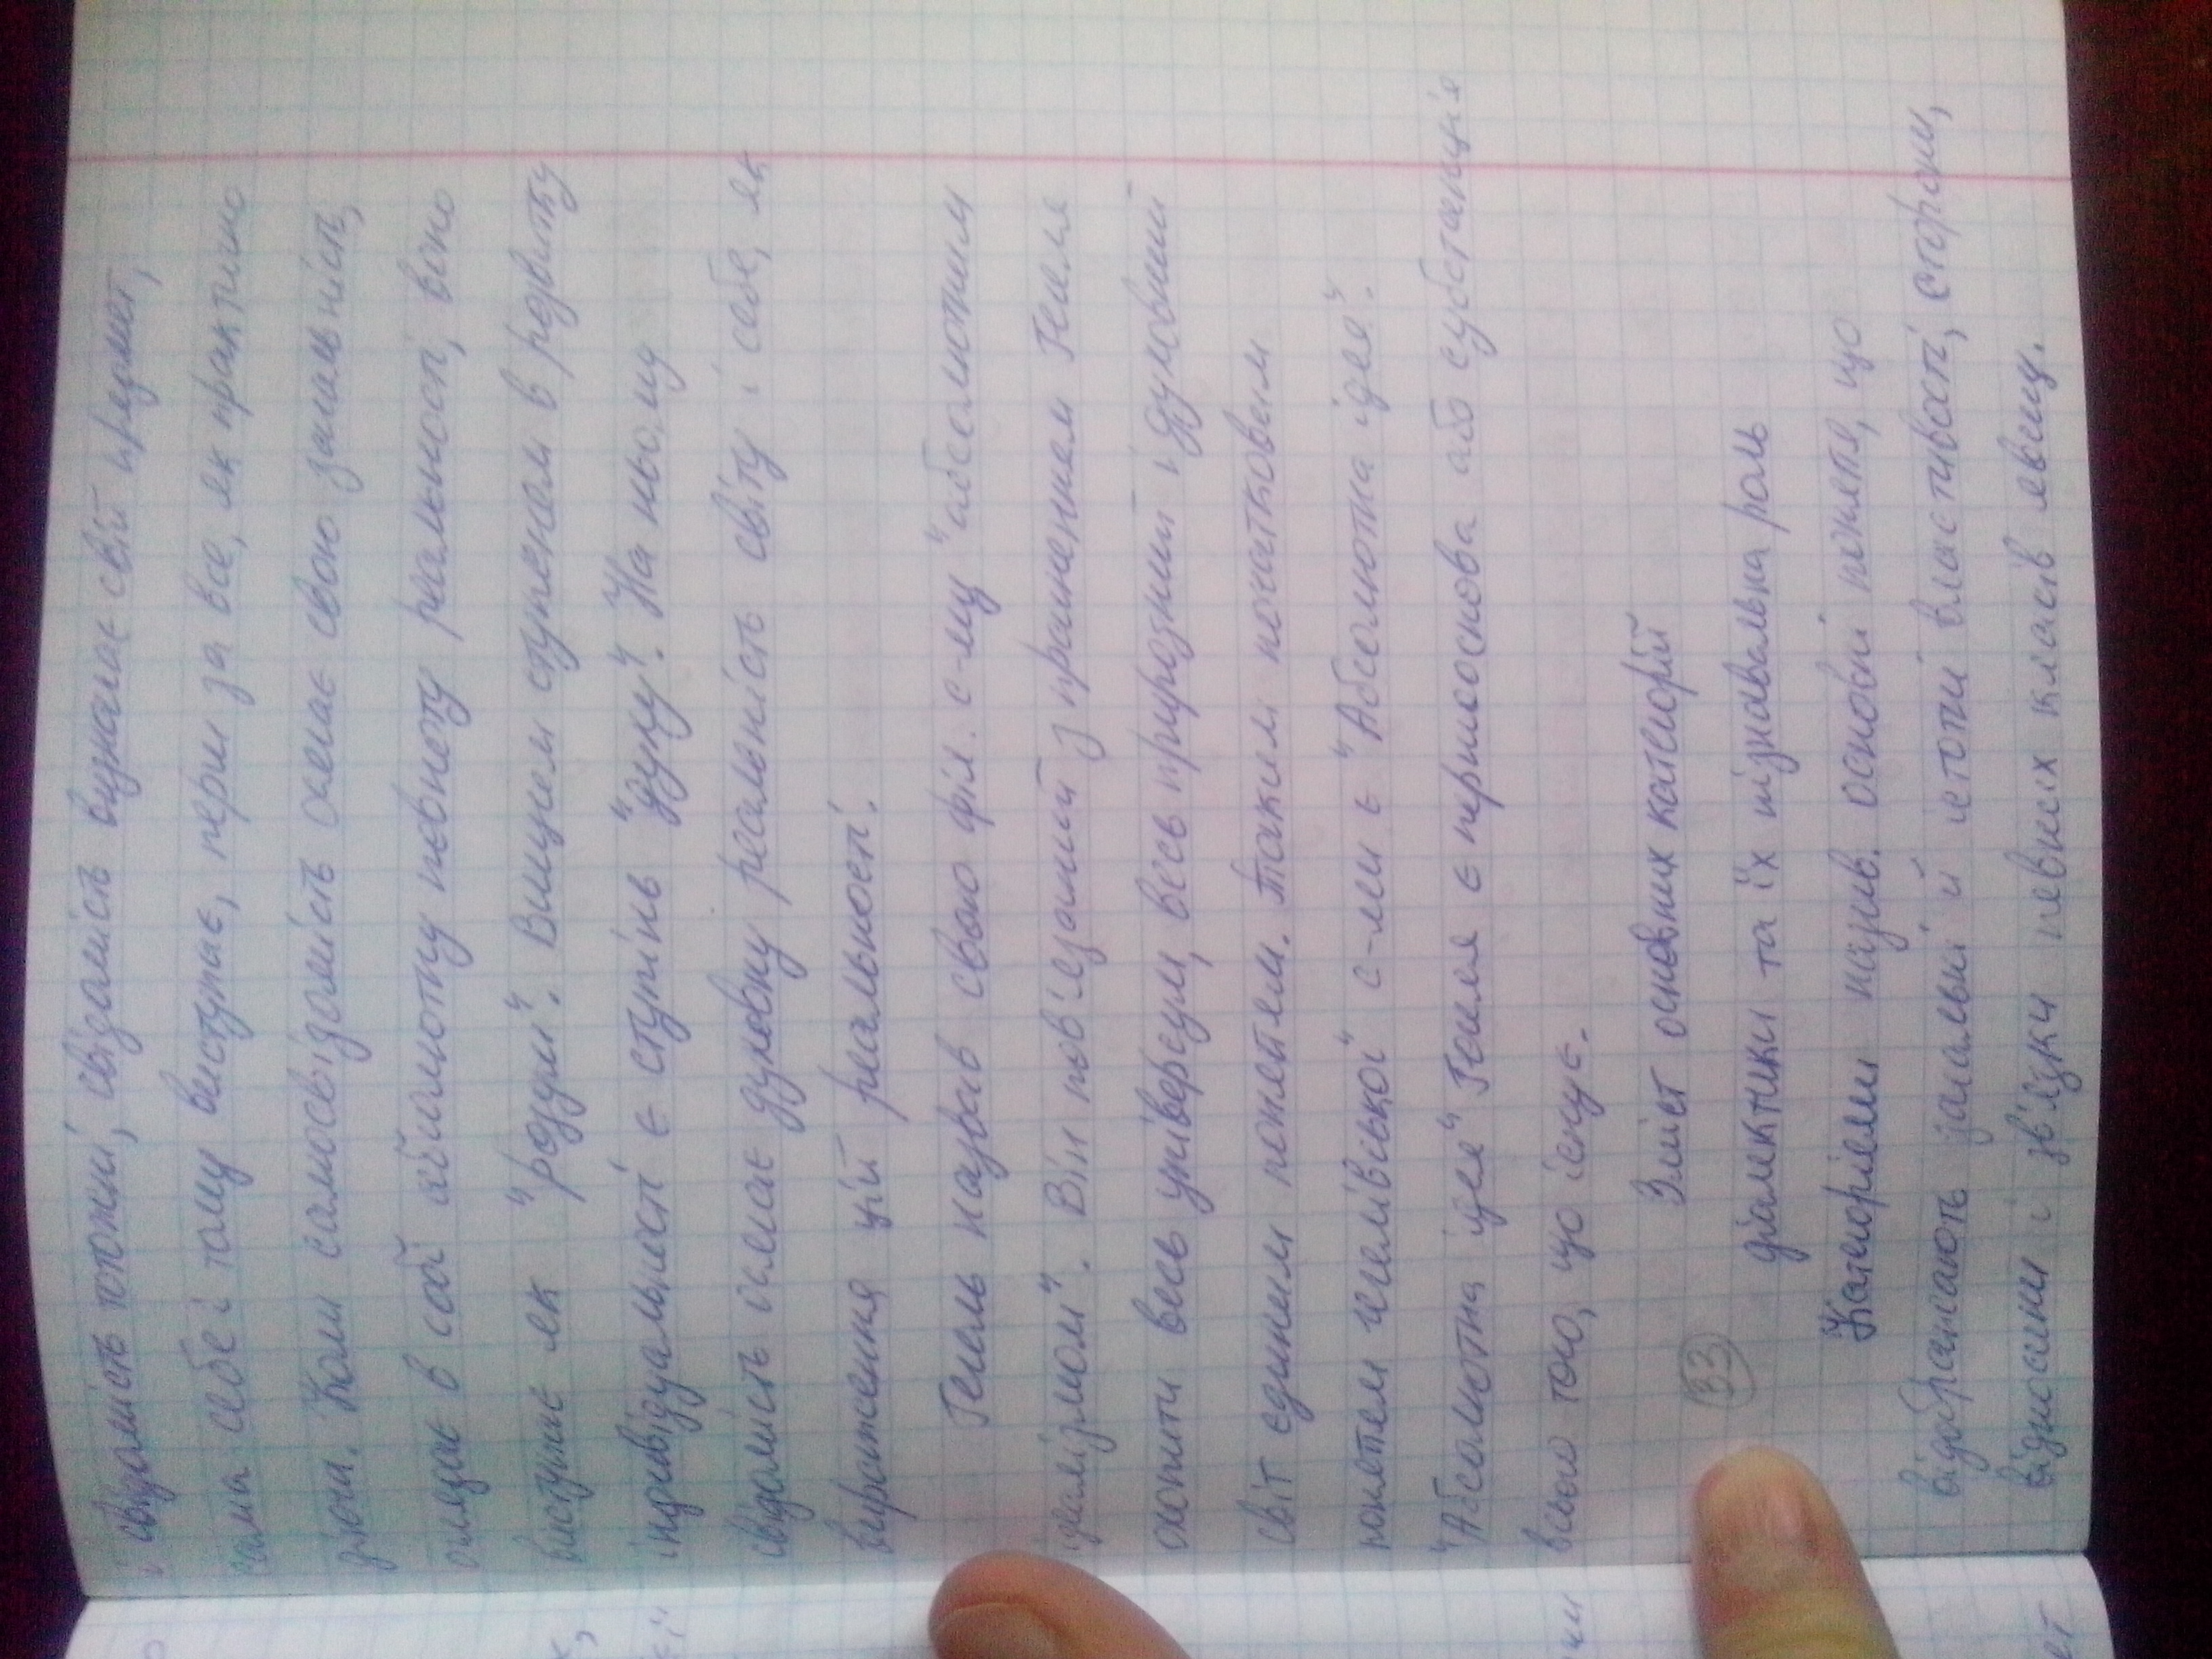 і свідомість тотожні, свідомість визначає свій предмет,
сама себе і тому виступає, перш за все, як практично
діюча. Коли самосвідомість осягає свою загальність,
вміщає в собі абсолютну повноту реальності, воно
виступає як "розум". Вищим ступенем в розвитку
індивідуальності є ступінь "духу". На ньому
свідомість осягає духовну реальність світу і себе, як
вираження цій реальності.
Гегель назвав свою філ. с-му "абсолютним
ідеалізмом". Він пов'язаний з прагненням Гегеля
охопити весь універсум, весь природний і духовний
світ єдиним поняттям. Таким початковим
поняттям гегелівської с-ми є "Абсолютна ідея".
"Абсолютна ідея" Гегеля є першооснова або субстанція
всього того, що існує.
33 Зміст основних категорій
діалектики та їх пізнавальна роль
Категоріями назив. основні поняття, що
відображають загальні й істотні властивості, сторони,
відносини і зв'язки певних класів явищ.